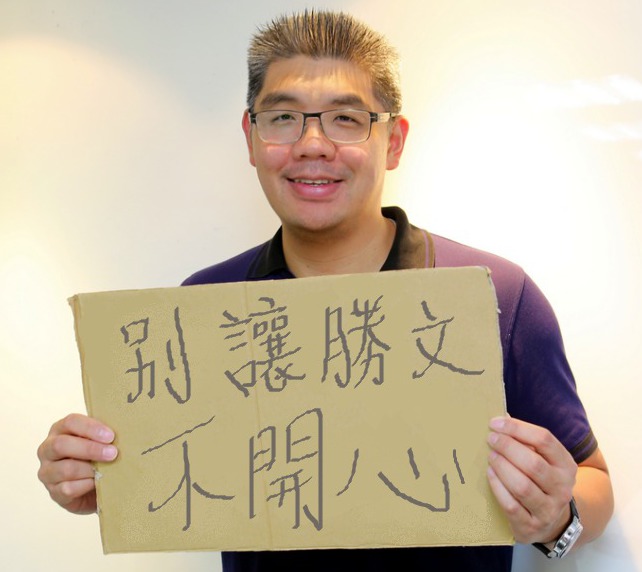 別讓勝文
不開心